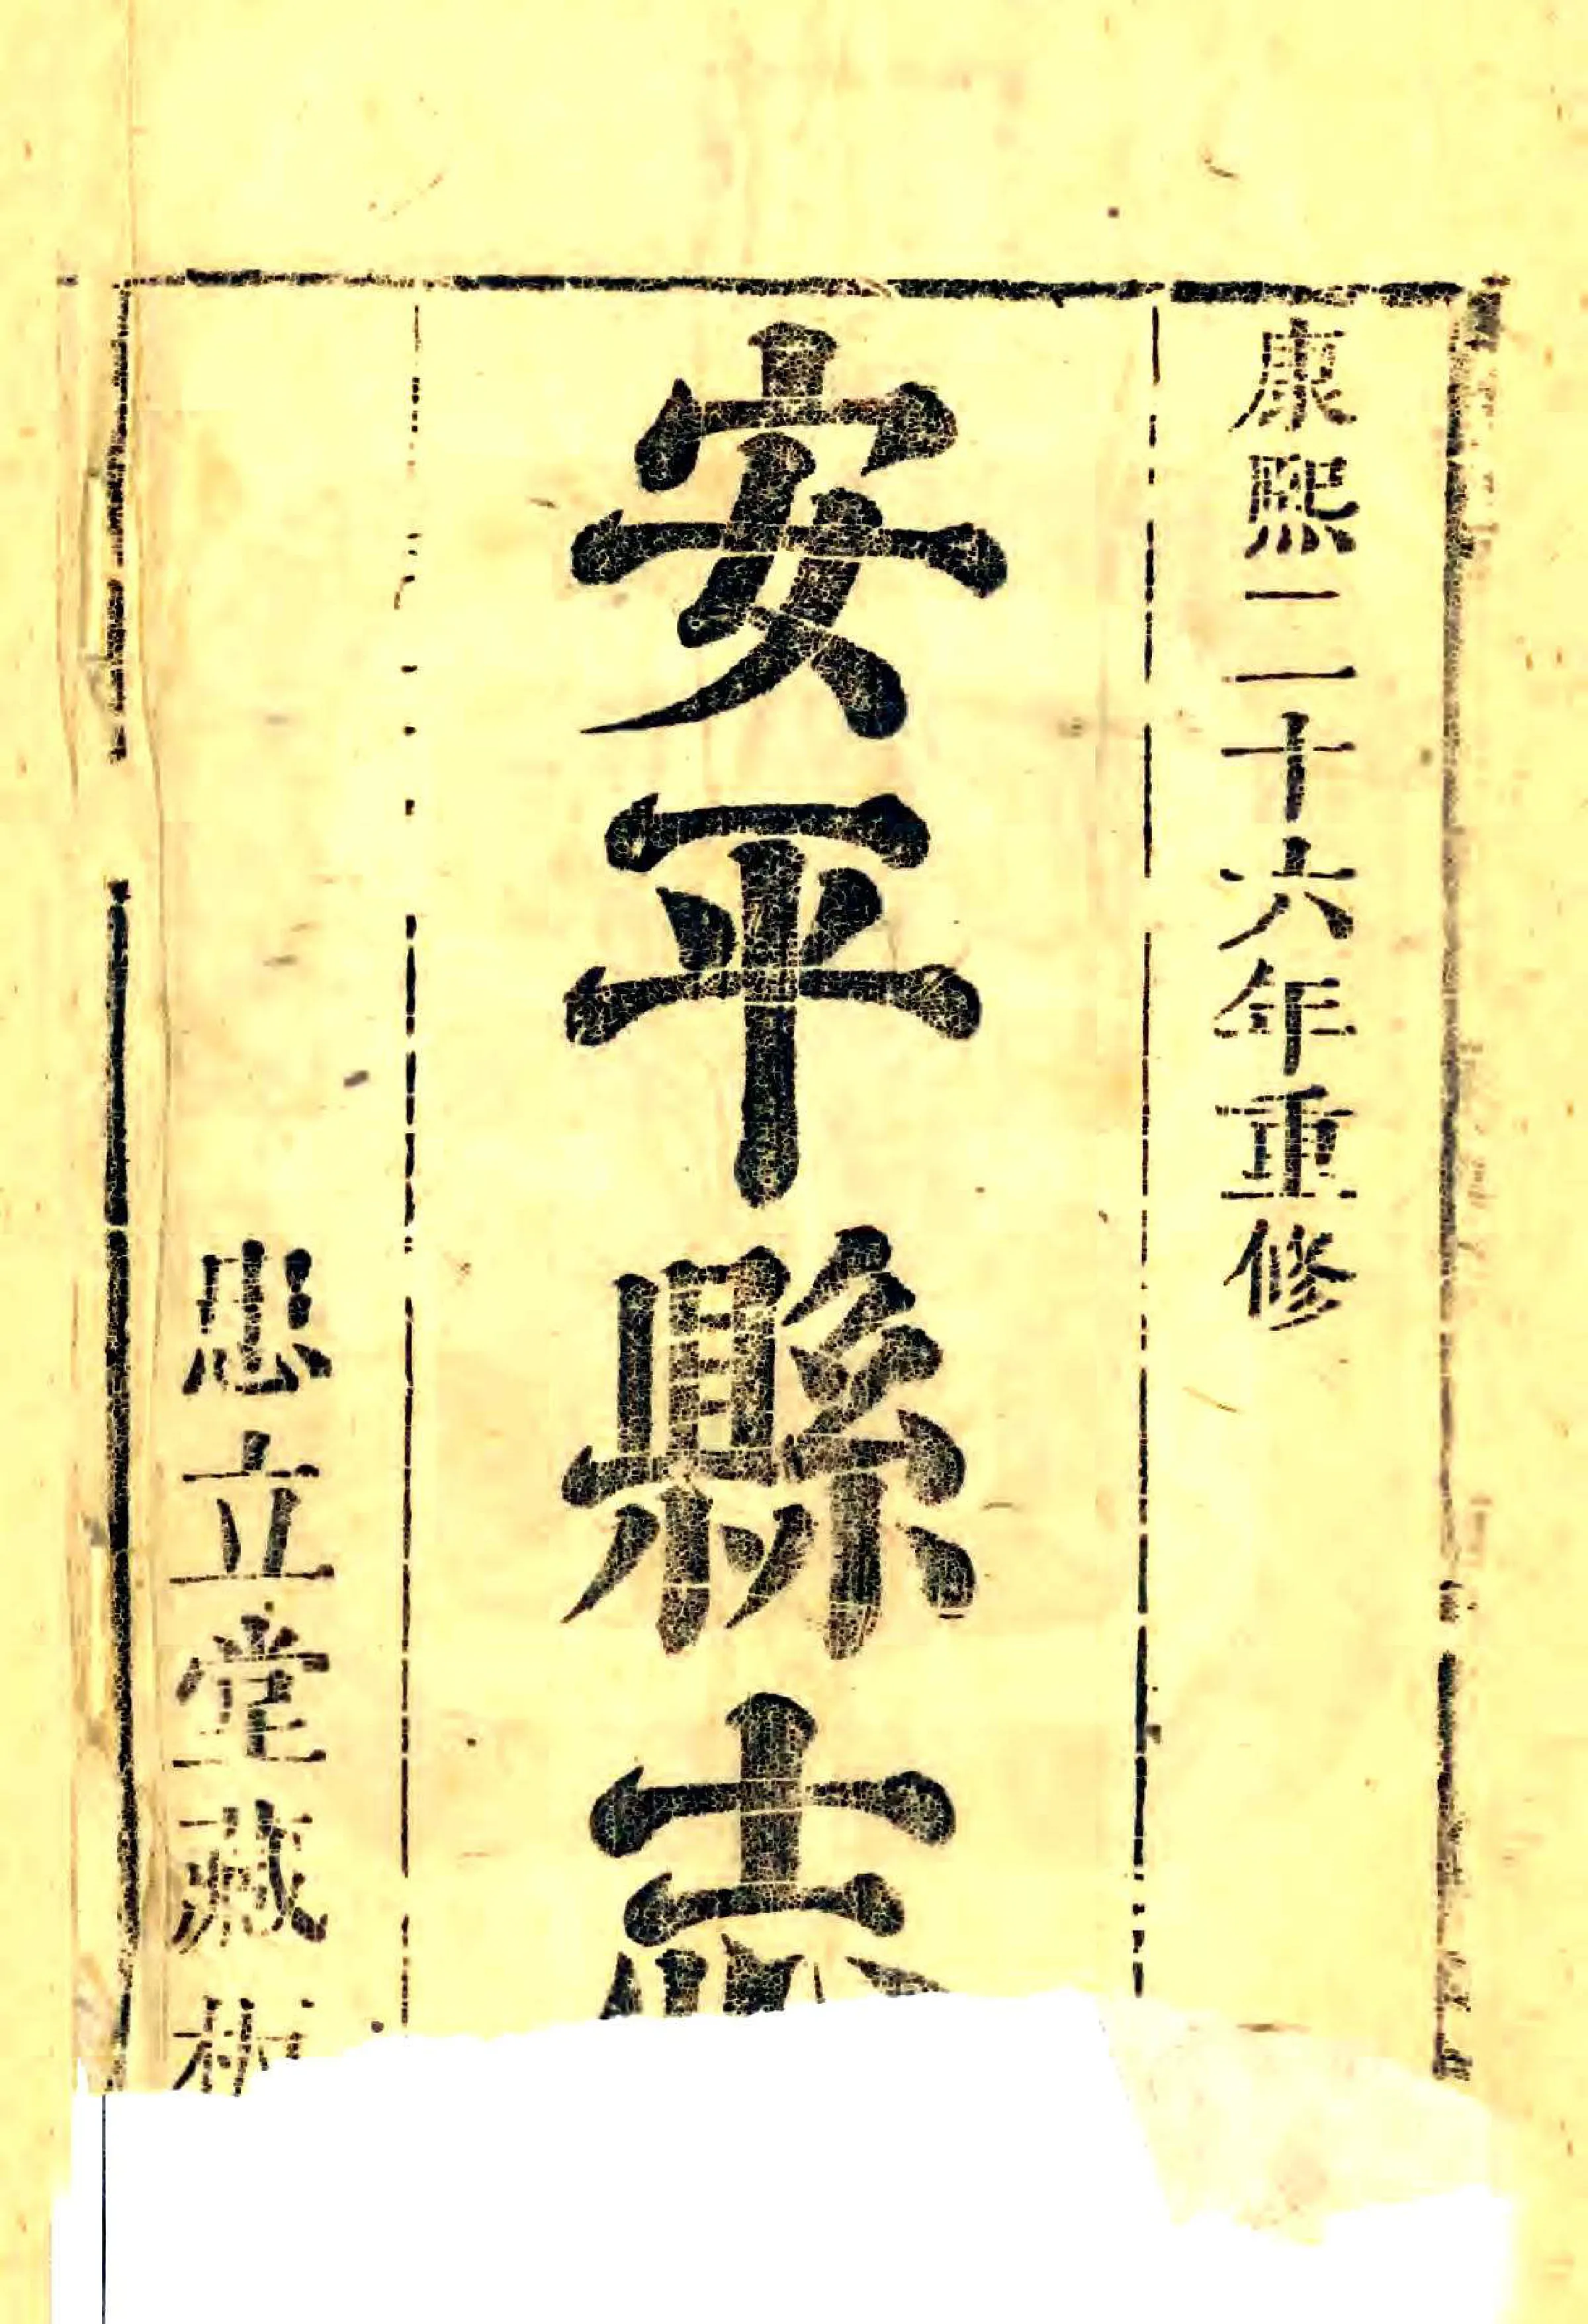 康熙二十六年重修
安平縣志
忠立堂藏板